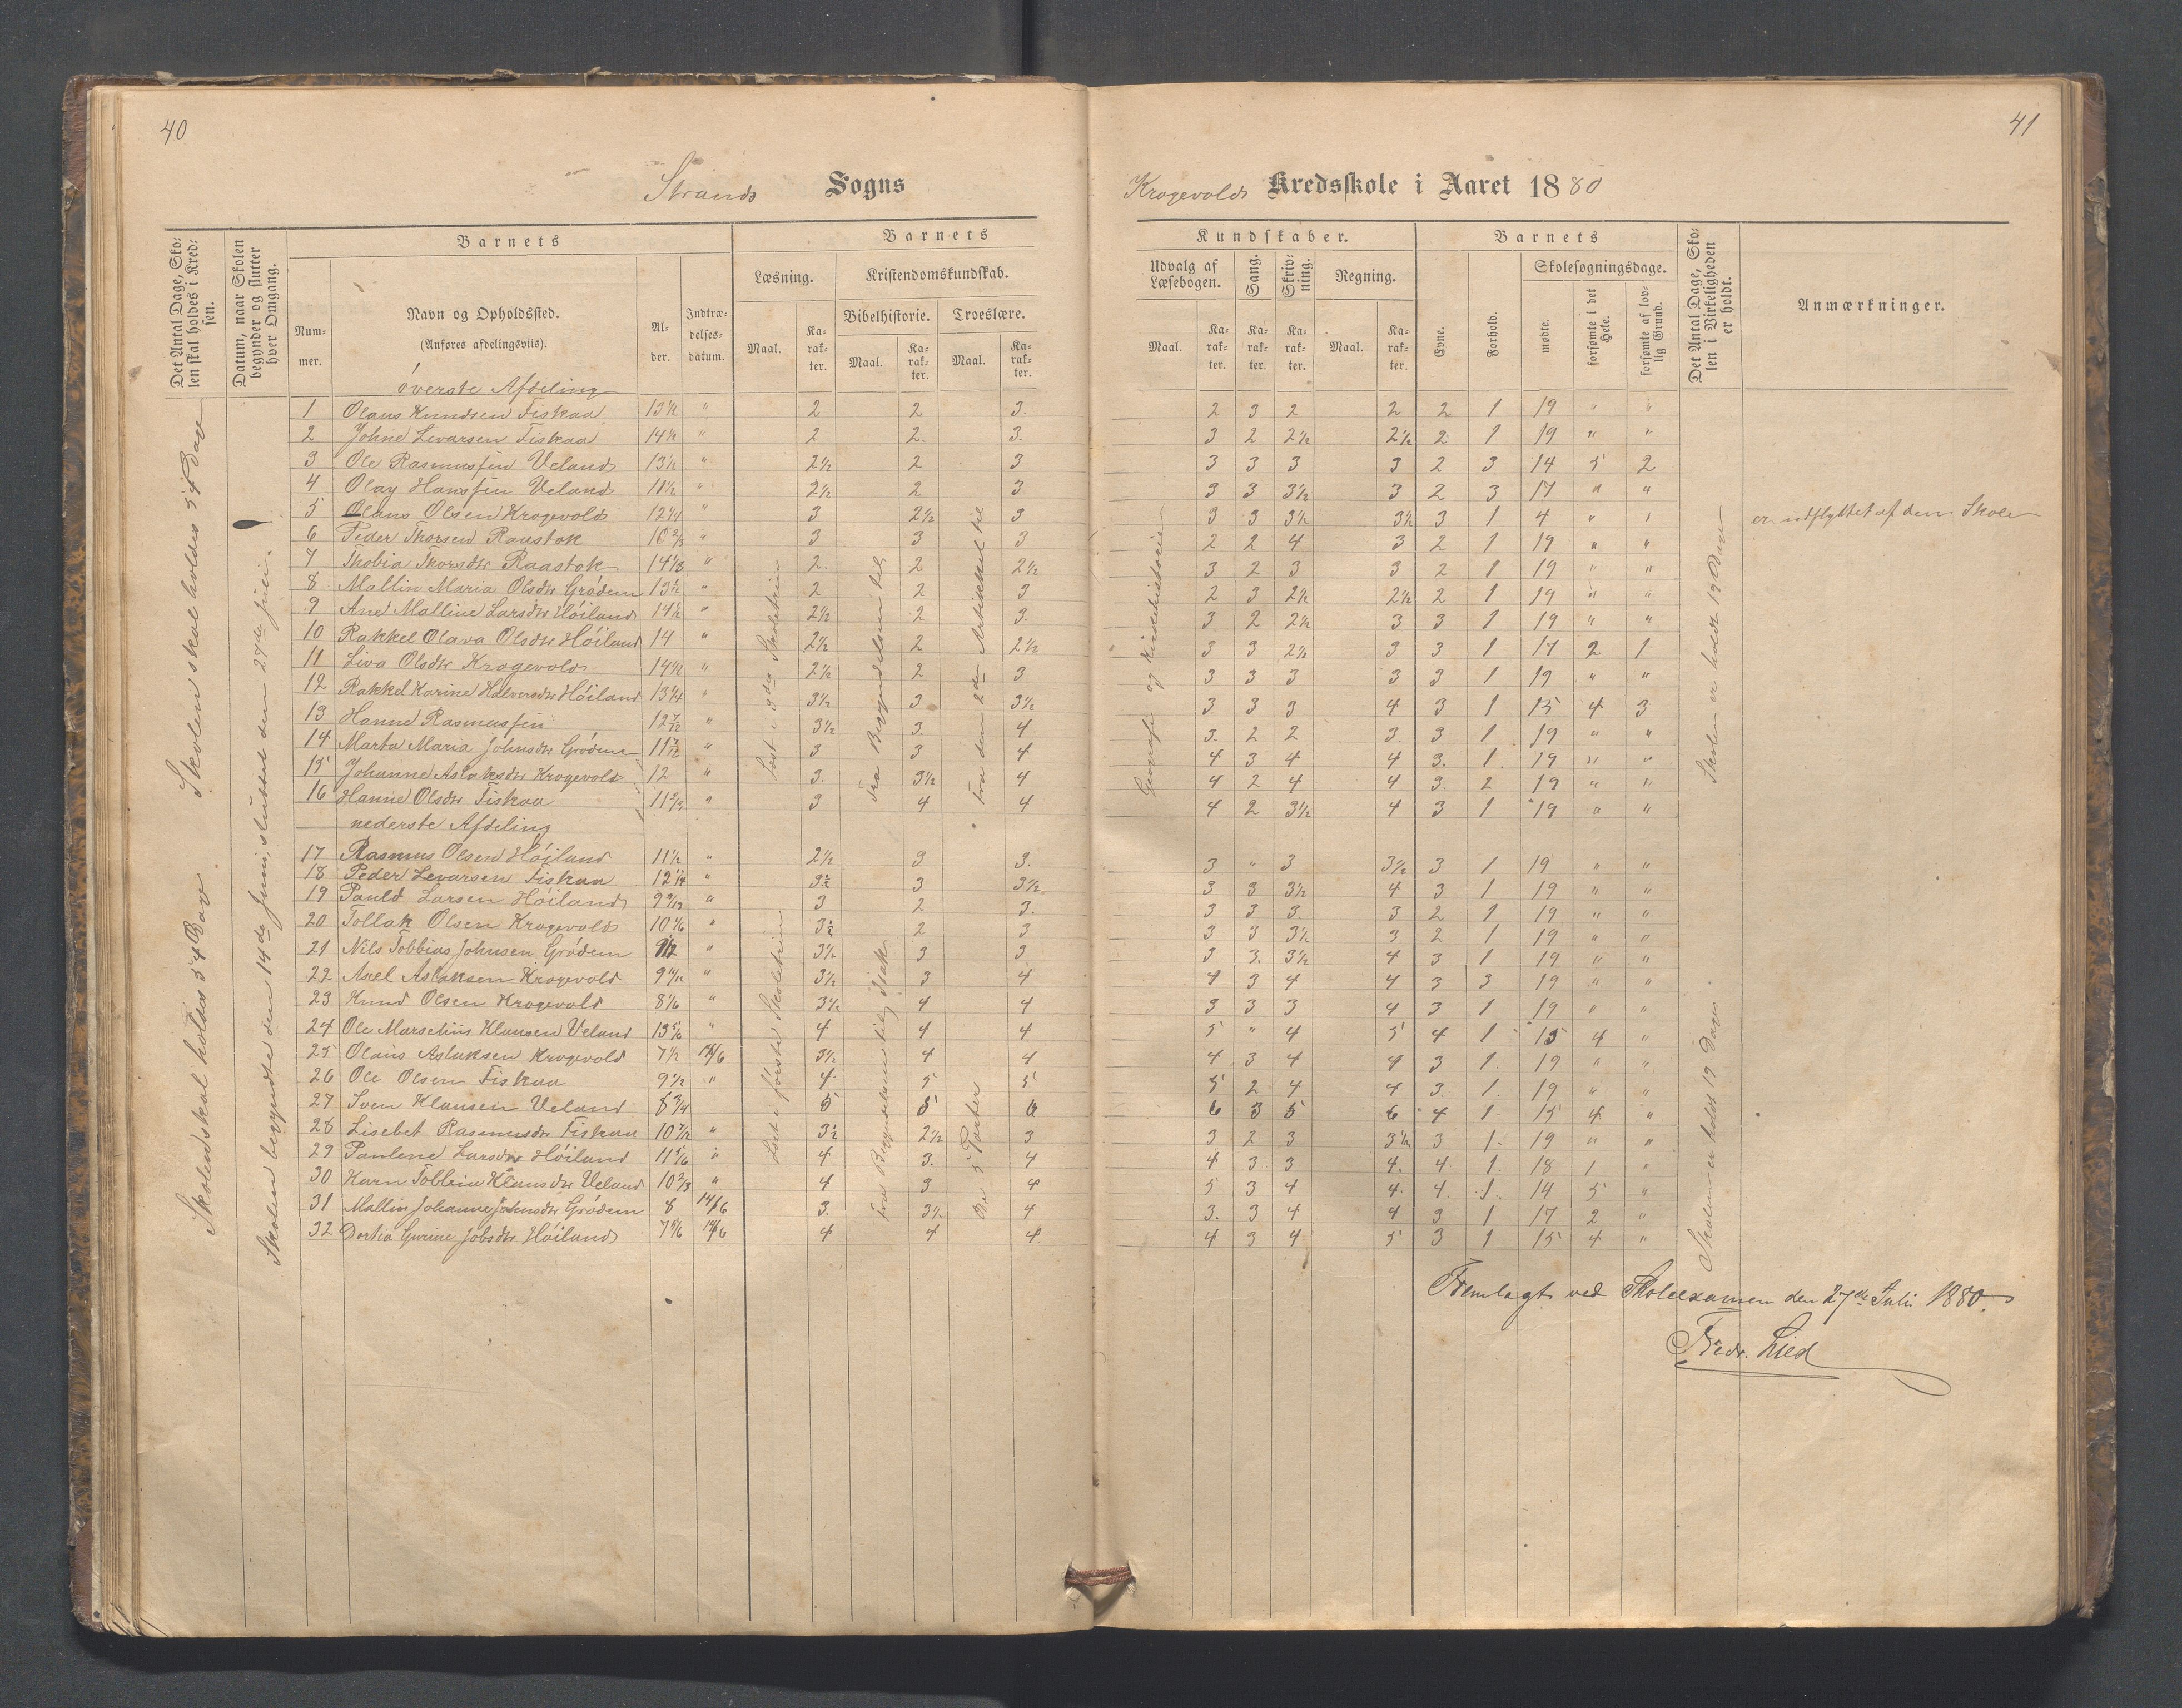 40
Strands Sogns
Det Antal Dage, Skolen skal holdes i Kredsen.
Datum, naar Skolen begynder og slutter hver Omgang.
Barnets
Nummer.
Navn og Opholdssted.
(Anføres afdelingsviis).
Alder.
Indtrædelsesdatum.
Barnets
Læsning.
Kristendomskundskab.
Bibelhistorie.
Troeslære.
Maal.
Karakter.
Maal.
Karakter.
Maal.
Karakter.
øverste Afdeling
1 Olaus Knudsen Fiskaa 13½ " 2 2 3.
2 Johne Levarsen Fiskaa 14½ " 2 2. 3.
3 Ole Rasmussen Veland 13½ " 2½ 2 3
4 Olay Hanssen Veland 11½ " 2½ 2 3
5 Olaus Olsen Krogevold 12¼ " 3 2½ 3
6 Peder Thorsen Raustok 10⅔ " 3 3 3
7 Thobia Thorsdtr Raastok 14⅓ " 2. 2 2½
8 Mallin Maria Olsdtr Grödem 13½ " 2 2 3
9 Ane Malline Larsdtr Höiland 14½ " 2½ 2 3.
10 Rakkel Olava Olsdtr Höiland 14 " 2½ 2 2½
11 Liva Olsdtr Krogevold 14½ " 2½ 2 3
12 Rakkel Karine Halversdtr Höiland 13¼ " 3½ 3 3½
13 Hanne Rasmussen 12 7/12 " 3½ 3. 4
14 Marta Maria Johnsdtr Grödem 11 7/12 " 3 3 4
15 Johanne Aslaksdtr Krogevold 12 " 3. 3½ 4
16 Hanne Olsdtr Fiskaa 11⅔ " 3 4 4
nederste Afdeling
17 Rasmus Olsen Höiland 11½ " 2½ 3 3.
18 Peder Levarsen Fiskaa 12¼ " 3½ 3 3½
19 Pauld Larsen Höiland " 3 2 3.
20 Tollak Olsen Krogevold 10⅙ " 3½ 2 3
21 Nils Tobbias Johnsen Grödem " 3½ 3 3
22 Axel Aslaksen Krogevold " 3½ 3 4
23 Knud Olsen Krogevold 8⅙ " 3½ 4 4
24 Ole Marselius Klausen Veland 13⅚ " 4 4 4
25 Olaus Aslaksen Krogevold 7½ 14/6 3½ 4 4
26 Ole Olsen Fiskaa 9½ " 4 5 5
27 Sven Klausen Veland 8¾ 5 5 6
28 Lisebet Rasmusdtr Fiskaa 10 7/12 " 3½ 2½ 3
29 Paulene Larsdtr Höiland 11⅙ " 4 3. 4
30 Karn Tobbia Klausdtr Veland 10⅔ " 4 3 4
31 Mallin Johanne Johnsdtr Grödem 8 14/6 3. 3½ 4
32 Dortia Gurine Jobsdtr Höiland 7⅚ 14/6 4 4 4
Skolen skal holdes 54 Dav
Skolen skal holdes 54 Dav
Skolen begyndte den 14de Juni, sluttet den 27de Juli.
Læst i 3die Skoletrin
Fra Begyndelsen til
Fra den 2den Artikkel til
Læst i første Skoletrin
Fra Begyndelsen til Isak
De 5 Parter
41
Krogevolds Kredsskole i Aaret 1880
Kundskaber.
Udvalg af Læsebogen.
Sang.
Skrivning.
Regning.
Maal.
Karakter.
Karakter.
Karakter.
Maal.
Karakter.
Barnets
Evne.
Forhold.
Skolesøgningsdage.
mødte.
forsømte i det Hele.
forsømte af lovlig Grund.
Det Antal Dage, Skolen i Virkeligheden er holdt.
Anmærkninger.
2 3 2 2 2 1 19 " "
3 2 2½ 2½ 2 1 19 " "
3 3 3 3 2 3 14 5 2
3 3 3½ 3 2 3 17 " "
3 3 3½ 3½ 3 1 4 " " er udflyttet af den Skole
2 2 4 3 2 1 19 " "
3 2 3 3 2 1 19 " "
2 3 2½ 2½ 2 1 19 " "
3 2 2½ 3 3 1 19 " "
3 3 2½ 3 3 1 17 2 1
3 3 3 3 3 1 19 " "
3 3 3 4 3 1 15 4 3
3. 2 2 3. 3 1 19 " "
4 3 4 4 3. 1. 19 " "
4 2 4 4 3. 2 19 " "
4 2 3½ 4 3 1 19 " "
3 " 3 3½ 3 1 19 " "
3 3 3½ 4 3 1 19 " "
3 3 3. 3 2 1 19 " "
3 3 3½ 3 2 1 19 " "
3 3. 3½ 4 3 1 19 " "
4 3 4 4 3 3 19 " "
3 3 3 4 3 1 19 " "
5 " 4 5 4 1 15 4 "
4 3 4 4 3 1. 19 " "
5 2 4 4 3. 1. 19 " "
6 3 5 6 4 1 15 4 "
3 2 3 3½ 3 1. 19 " "
4 3 3 4. 4 1. 18 1 "
5 3 4 4. 4. 1. 14 5 "
3. 3 4 4 3 1 17 2 "
4 3 4 5 3 1 15 4 "
Geografi og Kirkehistorie
Skolen er holdt 19 Dage
Skolen er holdt 19 Dage.
Fremlagt ved Skoleexamen den 27de Juli 1880.
Fredr. Lied